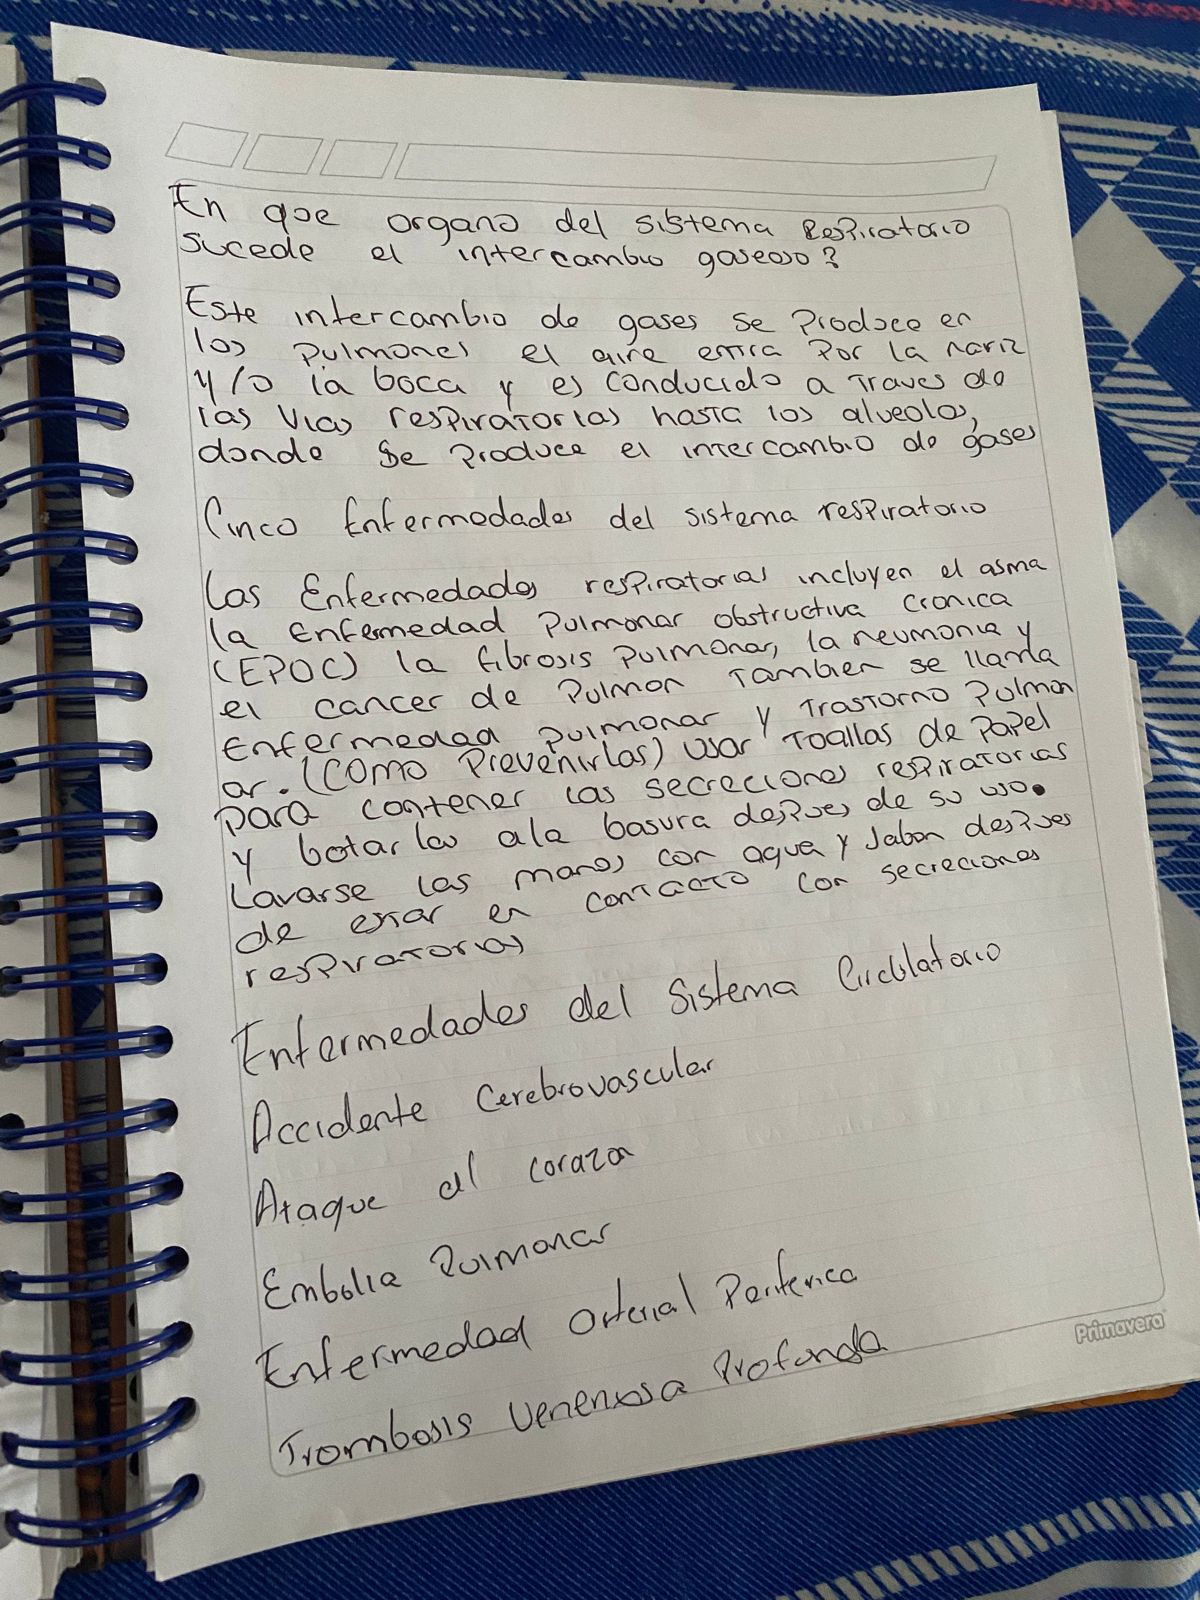 En que organo del sistema Respiratorio
sucede el intercambio gaseoso?
Este intercambio de gases se Produce en
los pulmones el aire entra Por la nariz
y/o la boca y es conducido a Traves de
las Vias respiratorias hasta los alveolos,
donde Se Produce el intercambio de gases
Cinco Enfermedades del sistema respiratorio
Las Enfermedades respiratorias incluyen el asma
la Enfermedad Pulmonar obstructiva cronica
(EPOC) la fibrosis Pulmonar, la neumonia y
el cancer de Pulmon Tambien se llama
Enfermedad pulmonar y Trastorno Pulmon
ar. (Como Prevenirlas) usar Toallas de Papel
para contener las secreciones respiratorias
y botarlas a la basura despues de su uso.
Lavarse las manos con agua y Jabon despues
de estar en contacto con secreciones
respiratorias
Enfermedades del Sistema Circulatorio
Accidente Cerebrovascular
Ataque al corazon
Embolia Pulmonar
Enfermedad Arterial Periferica
Trombosis Venenosa Profunda
Primavera